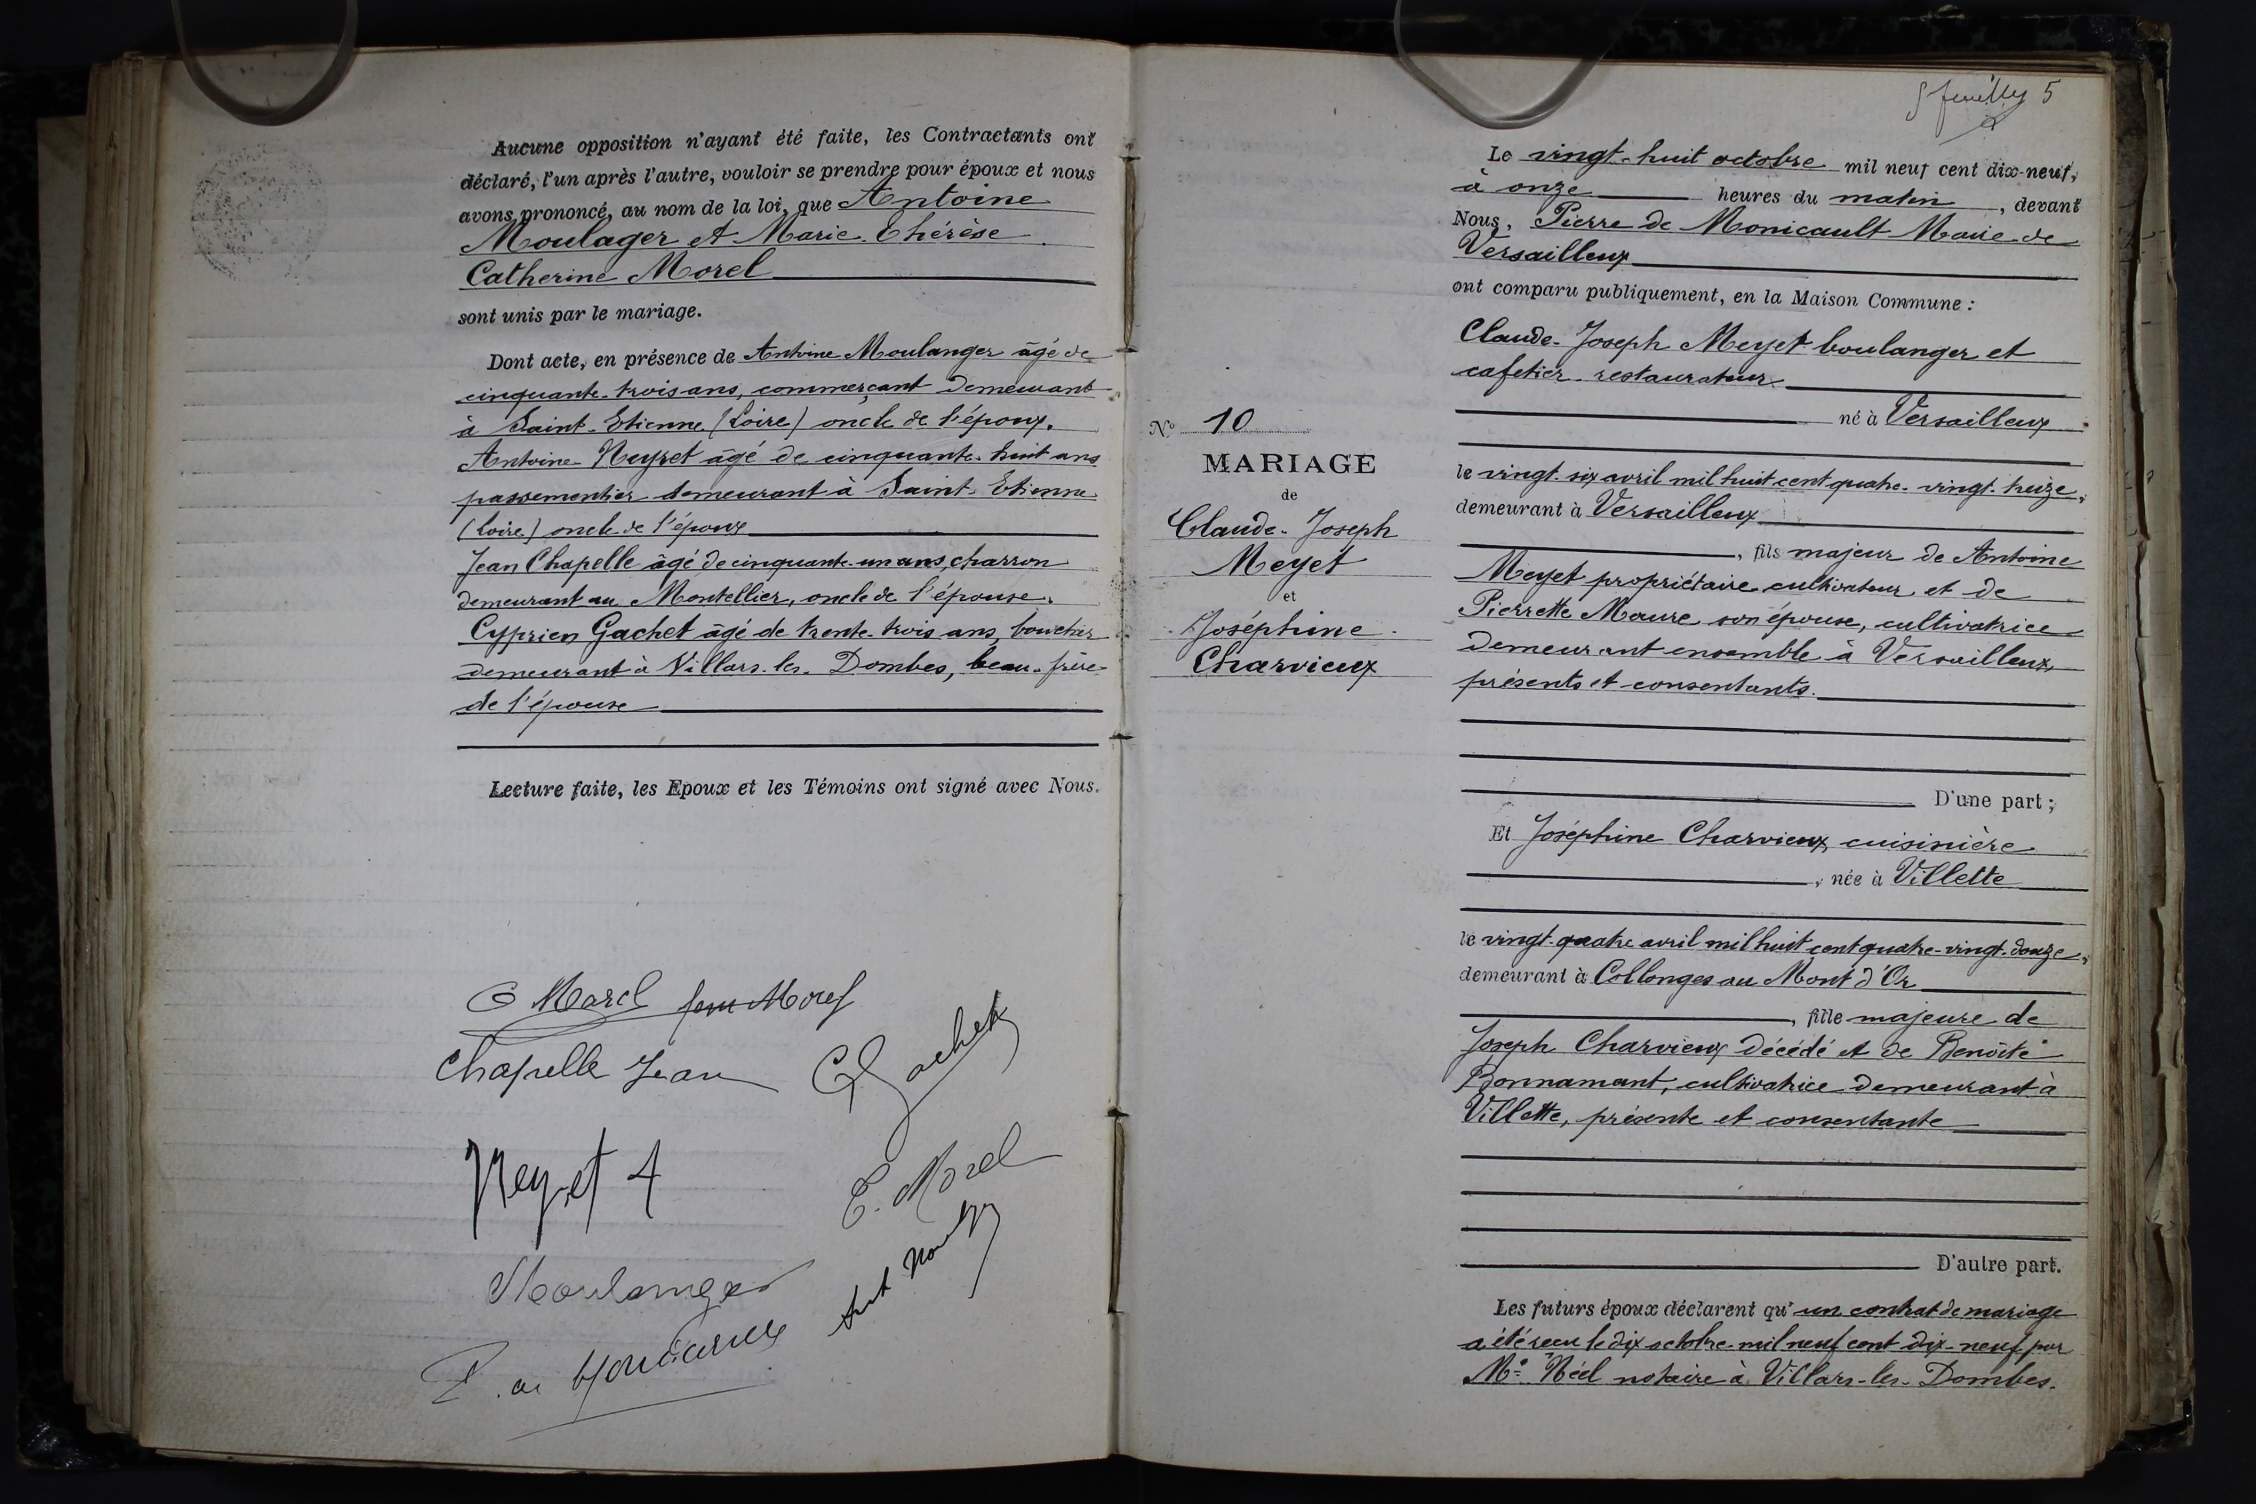 Aucune opposition n'ayant été faite, les Contractants ont
déclaré, l'un après l'autre, vouloir se prendre pour époux et nous
avons prononcé, au nom de la loi, que Antoine
Moulager et Marie Thérèse
Catherine Morel
sont unis par le mariage.
Dont acte, en présence de Antoine Moulanger âgé de
cinquante-trois ans, commerçant demeurant
à Saint-Etienne (Loire) oncle de l'époux.
Antoine Neyret âgé de cinquante-huit ans
passementier demeurant à Saint-Etienne
(Loire) oncle de l'époux
Jean Chapelle âgé de cinquante-un ans, charron
demeurant au Montellier, oncle de l'épouse.
Cyprien Gachet âgé de trente-trois ans, boucher
demeurant à Villars-les-Dombes, beau-frère
de l'épouse
Lecture faite, les Epoux et les Témoins ont signé avec Nous.
Morel
Chapelle Jean
Gachet
Neyret A
C. Morel
Moulanger
5
Le vingt-huit octobre mil neuf cent dix-neuf,
à onze heures du matin, devant
Nous, Pierre de Monicault Maire de
Versailleux
ont comparu publiquement, en la Maison Commune :
Claude-Joseph Meyet boulanger et
cafetier-restaurateur
né à Versailleux
le vingt-six avril mil huit cent quatre-vingt-treize,
demeurant à Versailleux
, fils majeur de Antoine
Meyet propriétaire cultivateur et de
Pierrette Maure son épouse, cultivatrice
demeurant ensemble à Versailleux,
présents et consentants.
D'une part ;
N° 10
MARIAGE
de
Claude-Joseph
Meyet
et
Joséphine
Charvieux
Et Joséphine Charvieux, cuisinière
, née à Villette
le vingt-quatre avril mil huit cent quatre-vingt-douze,
demeurant à Collonges au Mont d'Or
, fille majeure de
Joseph Charvieux décédé et de Benoîte
Bonnamant, cultivatrice demeurant à
Villette, présente et consentante
D'autre part.
Les futurs époux déclarent qu'un contrat de mariage
a été reçu le dix octobre mil neuf cent dix-neuf par
Me Néel notaire à Villars-les-Dombes.